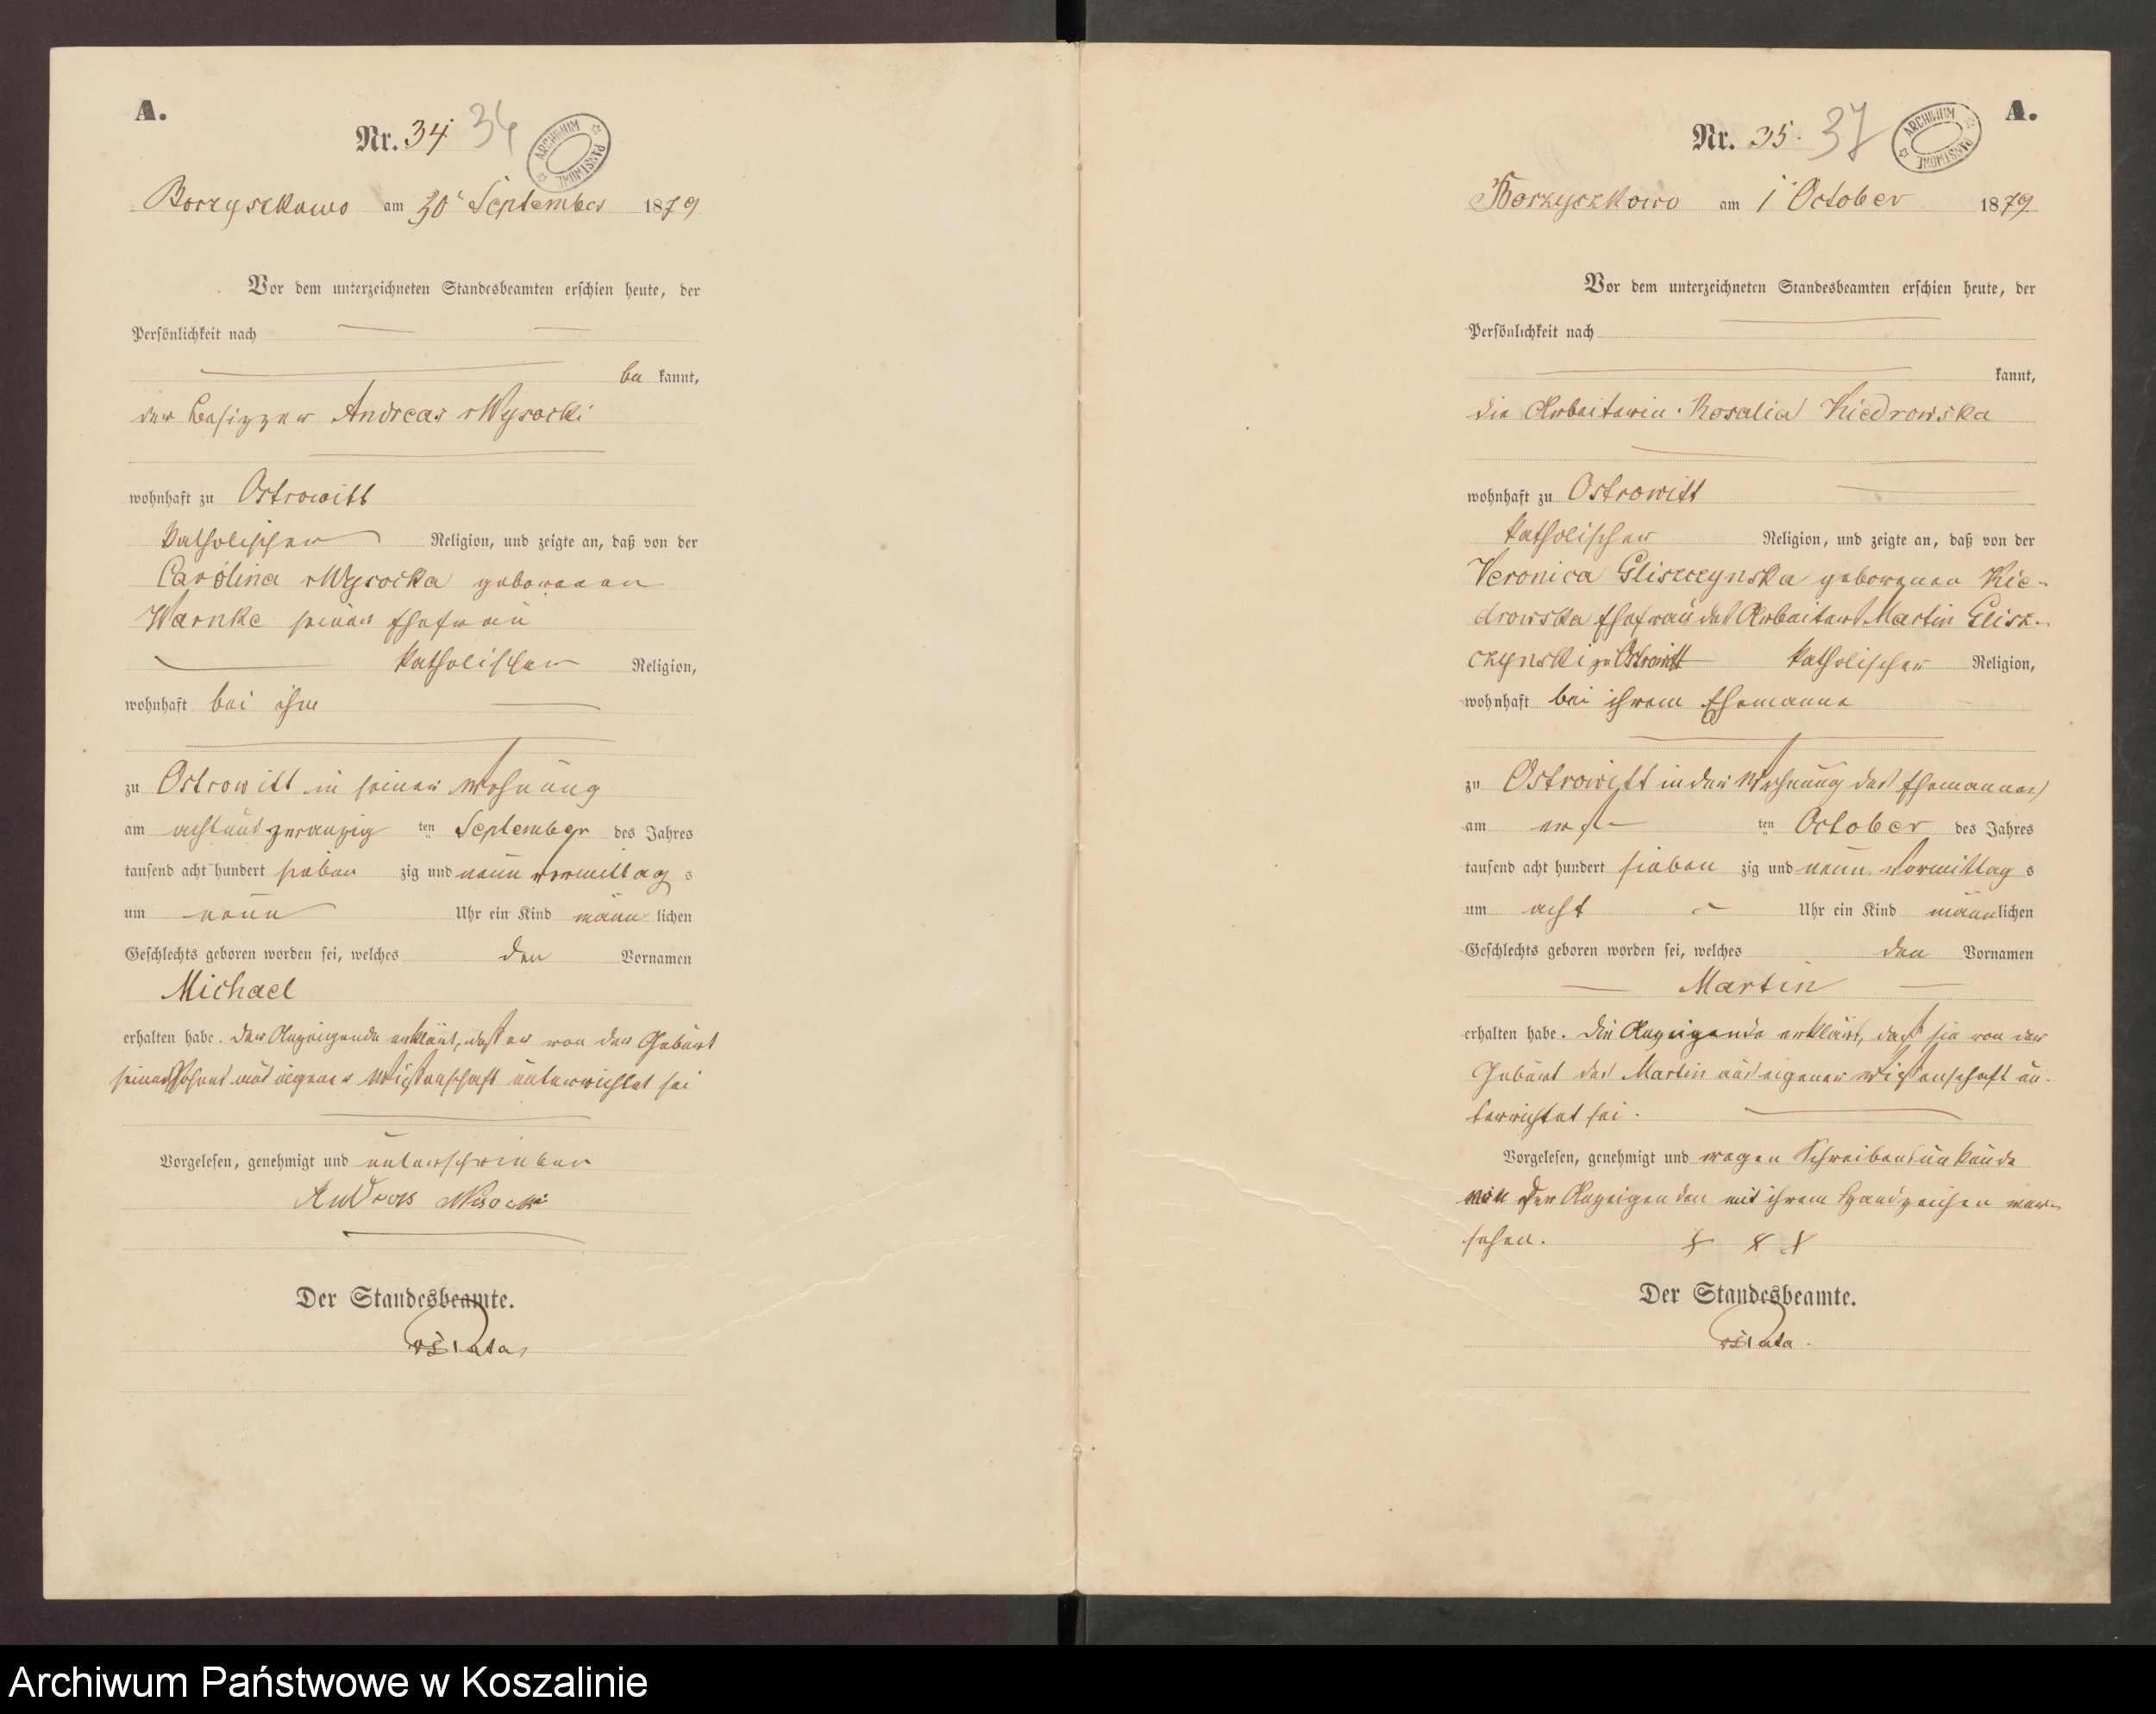 A.
Nr. 34 36
ARCHIWUM PAŃSTWOWE
Borzyszkowo am 30' September 1879
Vor dem unterzeichneten Standesbeamten erschien heute, der
Persönlichkeit nach
be kannt,
der Besitzer Andreas Wysocki
wohnhaft zu Ostrowitt
katholischer Religion, und zeigte an, daß von der
Carolina Wysocka geborenen
Warnke seiner Ehefrau
katholischer Religion,
wohnhaft bei ihm
zu Ostrowitt in seiner Wohnung
am achtundzwanzig ten September des Jahres
tausend acht hundert sieben zig und neun Vormittag s
um neun Uhr ein Kind männ lichen
Geschlechts geboren worden sei, welches den Vornamen
Michael
erhalten habe. Der Anzeigende erklärt, daß er von der Geburt
seines Sohnes aus eigener Wissenschaft unterrichtet sei
Vorgelesen, genehmigt und unterschrieben
Der Standesbeamte.
A.
Nr. 35. 37
ARCHIWUM PAŃSTWOWE
Borzyszkowo am 1' October 1879
Vor dem unterzeichneten Standesbeamten erschien heute, der
Persönlichkeit nach
kannt,
die Arbeiterin Rosalia Kiedrowska
wohnhaft zu Ostrowitt
katholischer Religion, und zeigte an, daß von der
Veronica Gliszczynska geborenen Kie-
drowska Ehefrau des Arbeiters Martin Glisz-
czynski zu Ostrowitt katholischer Religion,
wohnhaft bei ihrem Ehemanne
zu Ostrowitt in der Wohnung des Ehemannes
am ersten ten October des Jahres
tausend acht hundert sieben zig und neun Vormittag s
um acht Uhr ein Kind männlichen
Geschlechts geboren worden sei, welches den Vornamen
Martin
erhalten habe. Die Anzeigende erklärt, daß sie von der
Geburt des Martin aus eigener Wissenschaft un-
terrichtet sei.
Vorgelesen, genehmigt und wegen Schreibensunkunde
von der Anzeigenden mit ihrem Handzeichen ver-
sehen. X X X
Der Standesbeamte.
Archiwum Państwowe w Koszalinie